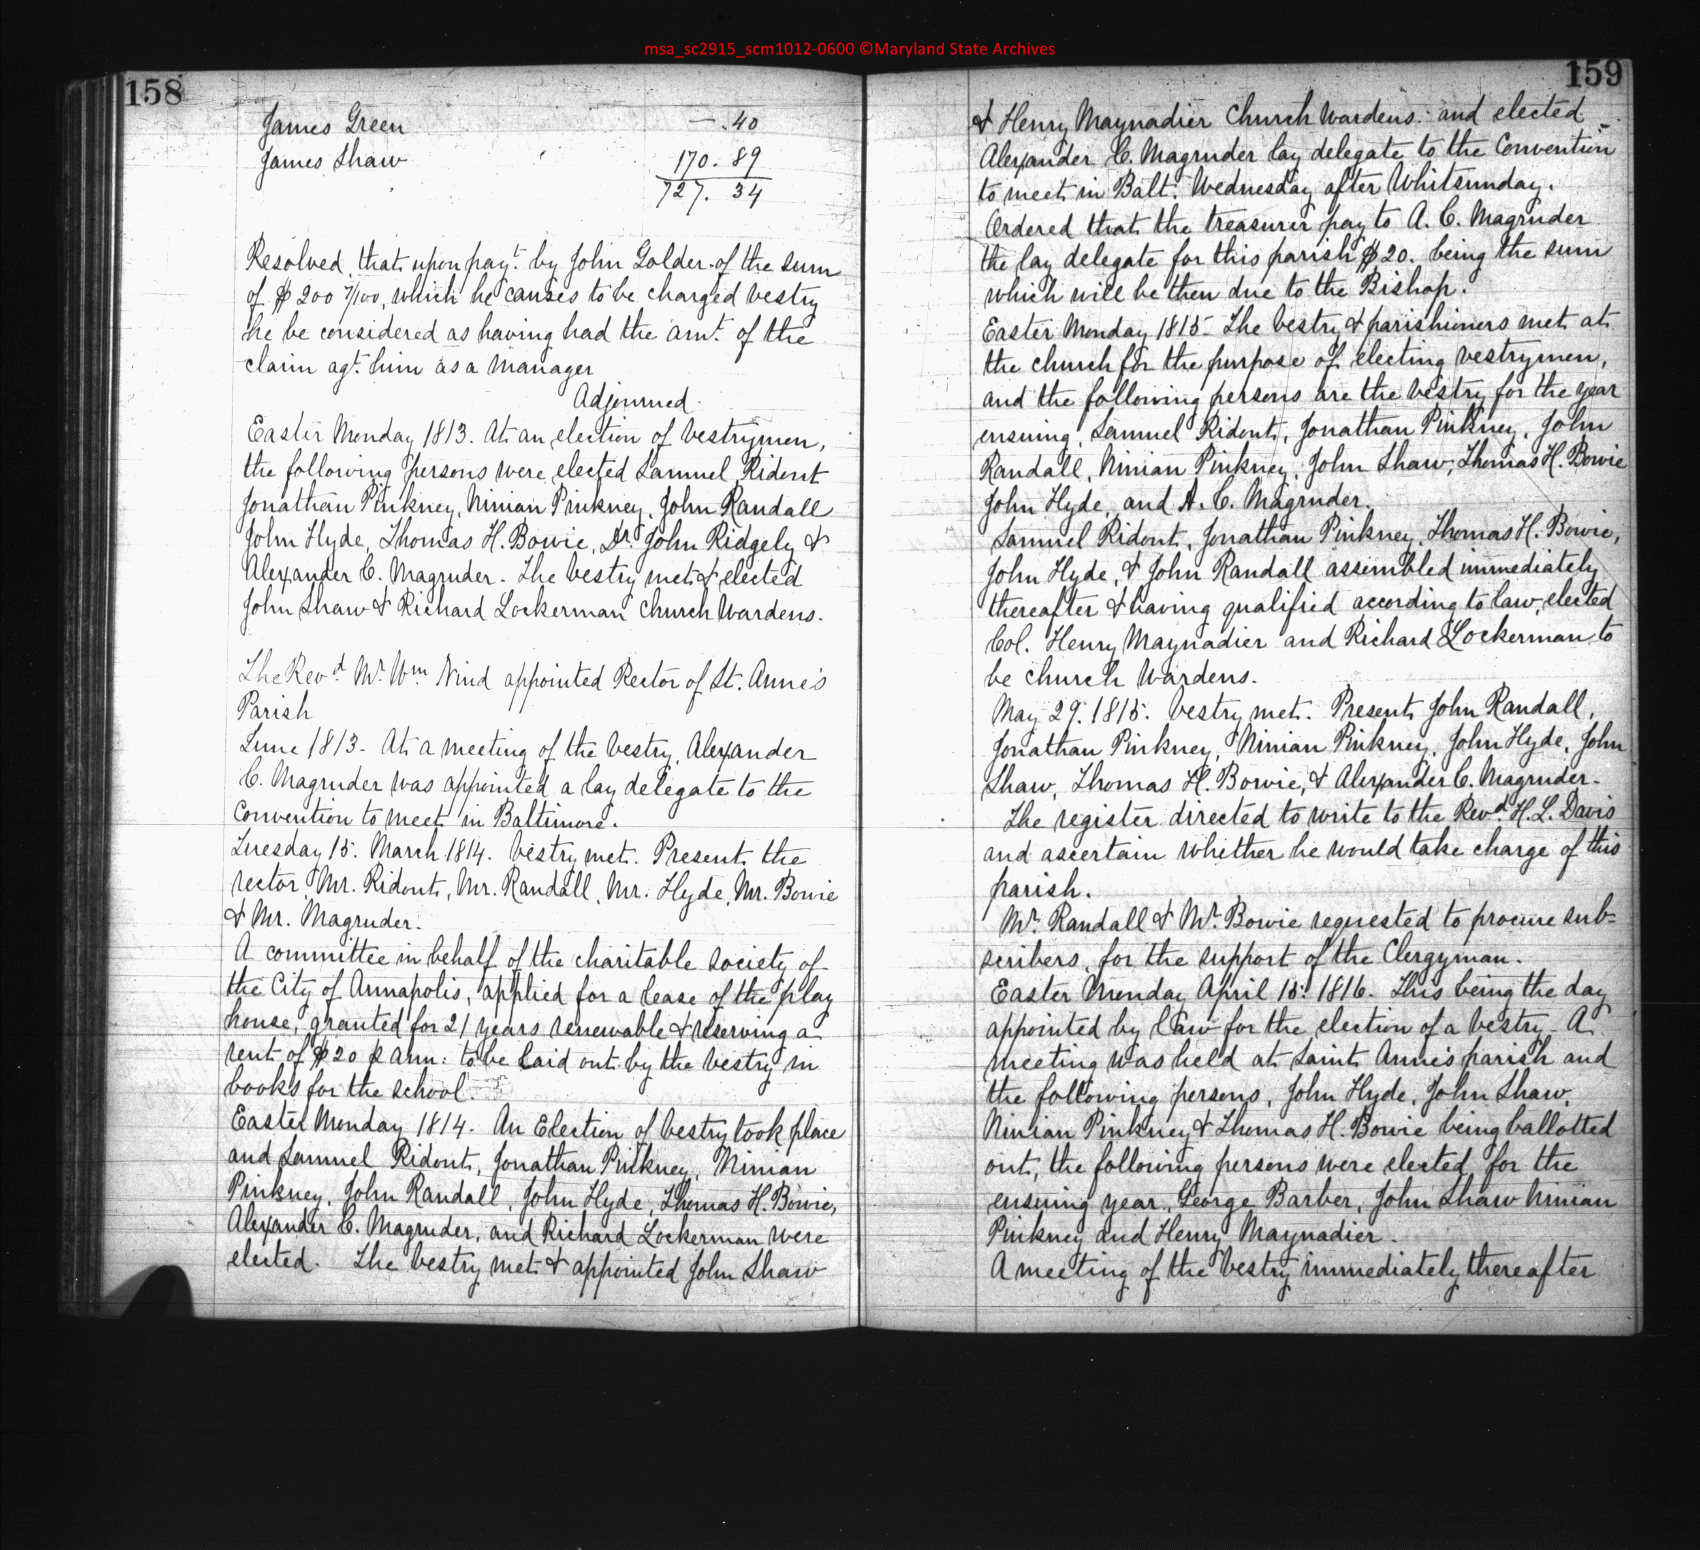 msa_sc2915_scm1012-0600 ©Maryland State Archives
158
James Green — .40
James Shaw 170. 89
727. 34
Resolved, that upon payt. by John Golder of the sum
of $200 7/100, which he causes to be charged vestry
he be considered as having had the amt. of the
claim agt. him as a manager
Adjourned.
Easter Monday 1813. At an election of vestrymen,
the following persons were elected Samuel Ridout
Jonathan Pinkney, Ninian Pinkney, John Randall
John Hyde, Thomas H. Bowie, Dr. John Ridgely &
Alexander C. Magruder. The vestry met & elected
John Shaw & Richard Lockerman Church Wardens.
The Revd. Mr. Wm Nind appointed Rector of St. Anne's
Parish
June 1813. At a meeting of the vestry, Alexander
C. Magruder was appointed a lay delegate to the
Convention to meet in Baltimore.
Tuesday 15. March 1814. Vestry met. Present the
rector Mr. Ridout, Mr. Randall, Mr. Hyde, Mr. Bowie
& Mr. Magruder.
A committee in behalf of the charitable society of
the City of Annapolis, applied for a lease of the play
house, granted for 21 years renewable & reserving a
rent of $20 ⅌ ann: to be laid out by the vestry in
books for the school.
Easter Monday 1814. An Election of vestry took place
and Samuel Ridout, Jonathan Pinkney, Ninian
Pinkney, John Randall, John Hyde, Thomas H. Bowie,
Alexander C. Magruder, and Richard Lockerman were
elected. The vestry met & appointed John Shaw
159
& Henry Maynadier Church Wardens: and elected
Alexander C. Magruder lay delegate to the Convention
to meet in Balt. Wednesday after Whitsunday.
Ordered that the treasurer pay to A. C. Magruder
the lay delegate for this parish $20. being the sum
which will be then due to the Bishop.
Easter Monday 1815. The vestry & parishioners met at
the church for the purpose of electing vestrymen,
and the following persons are the vestry for the year
ensuing, Samuel Ridout, Jonathan Pinkney, John
Randall, Ninian Pinkney, John Shaw, Thomas H. Bowie
John Hyde, and A. C. Magruder.
Samuel Ridout, Jonathan Pinkney, Thomas H. Bowie,
John Hyde, & John Randall assembled immediately
thereafter & having qualified according to law, elected
Col. Henry Maynadier and Richard Lockerman to
be church Wardens.
May 29. 1815. Vestry met. Present John Randall,
Jonathan Pinkney, Ninian Pinkney, John Hyde, John
Shaw, Thomas H. Bowie, & Alexander C. Magruder.
The register directed to write to the Revd. H. L. Davis
and ascertain whether he would take charge of this
parish.
Mr. Randall & Mr. Bowie requested to procure sub=
scribers, for the support of the Clergyman.
Easter Monday April 15: 1816. This being the day
appointed by law for the election of a vestry. A
meeting was held at Saint Anne's parish and
the following persons, John Hyde, John Shaw,
Ninian Pinkney & Thomas H. Bowie being ballotted
out, the following persons were elected for the
ensuing year, George Barber, John Shaw Ninian
Pinkney and Henry Maynadier.
A meeting of the vestry immediately thereafter